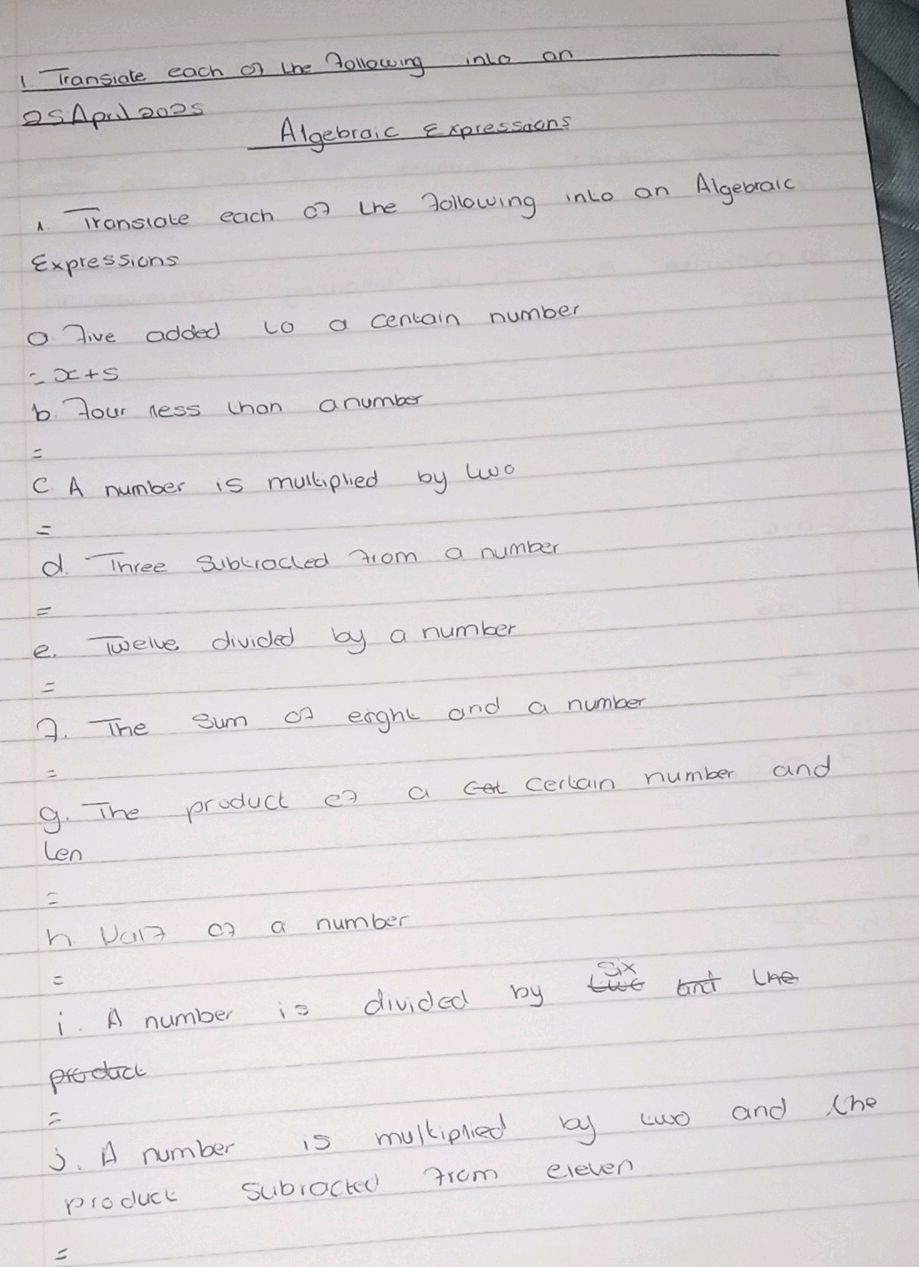 1. Translate each of the following into an
25 April 2025
Algebraic Expressions
1. Translate each of the following into an Algebraic
Expressions
a. Five added to a certain number
= x+5
b. Four less than a number
=
c A number is multiplied by two
=
d. Three Subtracted from a number
=
e. Twelve divided by a number
=
f. The Sum of eight and a number
=
g. The product of a cet certain number and
ten
=
h. Half of a number
=
i. A number is divided by two six and the
product
=
j. A number is multiplied by two and the
product Subracted from eleven
=